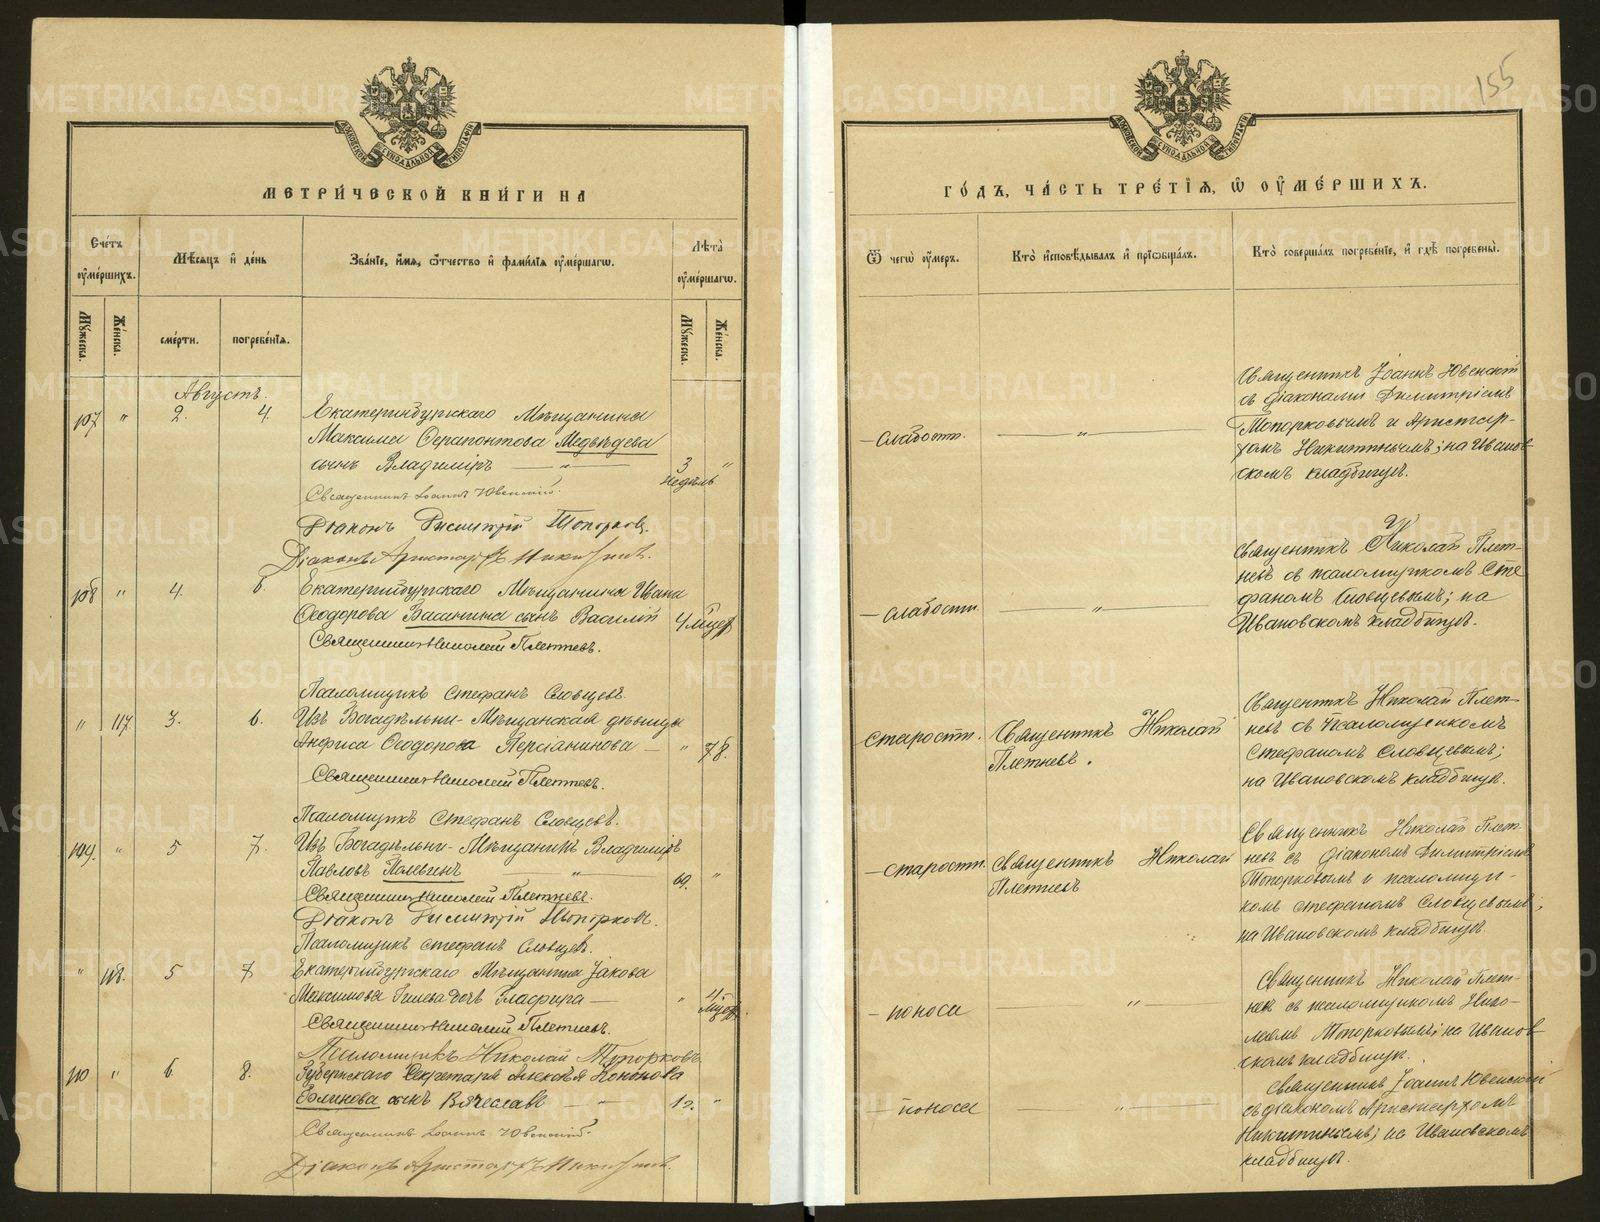 155
МОСКОВСКОЙ СѴНОДАЛЬНОЙ ТИПОГРАФІИ
МЕТРИ́ЧЕСКОЙ КНИ́ГИ НА
Сче́тъ ᲂумéршихъ.
Мѣ́сяцъ и҆ де́нь
Зва́нїе, и҆́мя, ѻ҆́тчество и҆ фами́лїя ᲂумéршагѡ.
Лѣ́та ᲂумéршагѡ.
Мꙋ́жеска.
Же́нска.
сме́рти.
погребе́нїя.
Мꙋ́жеска.
Же́нска.
Августъ.
107 " 2. 4. Екатеринбургскаго Мѣщанина
Максима Ѳерапонтова Медвѣдева
сынъ Владиміръ — " — 3 недѣль "
Священникъ Іоаннъ Ювенскій.
Діаконъ Димитрій Топорковъ.
Діаконъ Аристархъ Никитинъ.
108 " 4. 6. Екатеринбургскаго Мѣщанина Ивана
Ѳеодорова Васинина сынъ Василій 4 мѣсец
Священникъ Николай Плетневъ.
Псаломщикъ Стефанъ Словцевъ.
" 117. 3. 6. Изъ Богадѣльни - Мѣщанская дѣвица
Анфиса Ѳеодорова Персіанинова — " 78.
Священникъ Николай Плетневъ.
Псаломщикъ Стефанъ Словцевъ.
109. " 5 7. Изъ Богадѣльни - Мѣщанинъ Владиміръ
Павловъ Полевинъ — " — 60. "
Священникъ Николай Плетневъ.
Діаконъ Димитрій Топорковъ.
Псаломщикъ Стефанъ Словцевъ.
" 118. 5 7 Екатеринбургскаго Мѣщанина Іакова
Максимова дочь Глафира — " 4 мѣсец
Священникъ Николай Плетневъ.
Псаломщикъ Николай Топорковъ.
110 " 6. 8. Губернскаго Секретаря Алексѣя Кононова
Блинова сынъ Вячеславъ — " — "
Священникъ Іоаннъ Ювенскій.
Діаконъ Аристархъ Никитинъ.
ГО́ДЪ, ЧА́СТЬ ТРЕ́ТЇЯ, Ѡ҆ ОУ҆МЕ́РШИХЪ.
Ѿ чегѡ̀ ᲂу҆́меръ.
Кто̀ и҆сповѣ́дывалъ и҆ прїѡбща́лъ.
Кто̀ соверша́лъ погребе́нїе, и҆ гдѣ̀ погребены̀.
Священникъ Іоаннъ Ювенскій
съ діаконами Димитріемъ
— слабости. — " — Топорковымъ и Аристар-
хомъ Никитинымъ; на Иванов-
скомъ кладбищѣ.
Священникъ Николай Плет-
невъ съ псаломщикомъ Сте
— слабости — " фаномъ Словцевымъ; на
Ивановскомъ кладбищѣ.
Священникъ Николай Плет-
старости. Священникъ Николай невъ съ Псаломщикомъ
Плетневъ. Стефаномъ Словцевымъ;
на Ивановскомъ кладбищѣ.
Священникъ Николай Плет-
— старости. Священникъ Николай невъ съ діакономъ Димитріемъ
Плетневъ Топорковымъ и псаломщи-
комъ Стефаномъ Словцевымъ;
на Ивановскомъ кладбищѣ.
Священникъ Николай Плет-
— поноса " — невъ съ псаломщикомъ Нико-
лаемъ Топорковымъ; на Иванов-
скомъ кладбищѣ.
Священникъ Іоаннъ Ювенскій
— поноса — " — съ діакономъ Аристархомъ
Никитинымъ; на Ивановскомъ
кладбищѣ.
METRIKI.GASO-URAL.RU